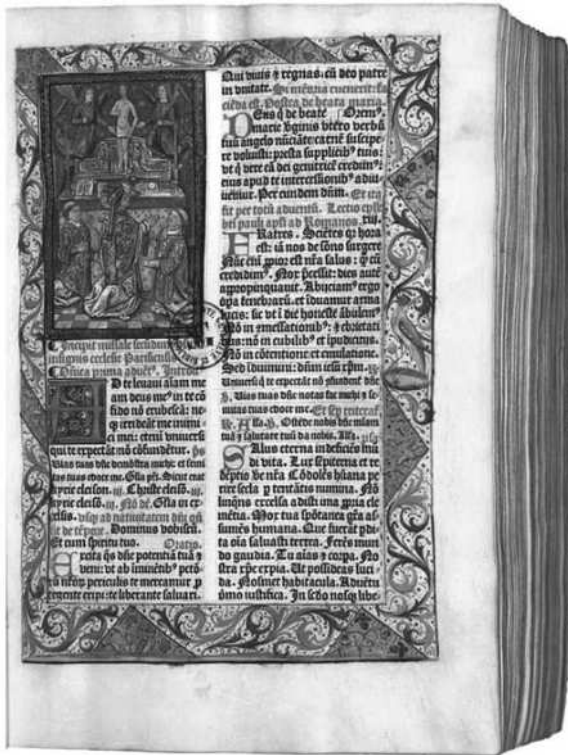 Incipit missale secundum
insignis ecclesie Parisiensis
Dñica prima aduētꝰ. Introitꝰ
AD te leuaui aīam me
am deus meꝰ in te cō
fido nō erubescā: ne
qꝫ irrideāt me inimi
ci mei: etenī vniuersi
qui te expectāt nō cōfundētur. ps
Vias tuas dñe demōstra michi: et semi
tas tuas edoce me. Gl'a pr̄i. Sicut erat
Kyrie eleison. iij. Christe eleisō. iij.
Kyrie eleisō. iij. Nō dr̄. Gl'a in ex
celsis. vsqꝫ ad natiuitatem dñi
et de tēpore. Dominus vobiscū.
Et cum spiritu tuo. Oratio.
Excita qs dñe potentiā tuā ⁊
veni: vt ab iminētibꝰ petō
rū nr̄oꝝ periculis te mereamur ꝓ
tegente eripi: te liberante saluari.
Qui viuis ⁊ regnas. cū deo patre
in vnitate. Si mēoria euenerit: fa
ciēda est. Postea de beata maria.
DEus q̄ de beate Oremꝰ.
marie v̓ginis vtero verbū
tuū angelo nūciāte carnē suscipe
re voluisti: presta supplicibꝰ tuis:
vt q̄ vere eā dei genitricē credimꝰ:
eius apud te intercessionibꝰ adiu
uemur. Per eundem dūm. Et ita
fit per totū aduentū. Lectio epl'e
bti pauli apl'i ad Romanos.
FRatres. Sciētes qꝛ hora
est: iā nos de sōno surgere
Nūc eni ꝓpior est nr̄a salus: q̄ cū
credidimꝰ. Nox p̄cessit: dies autē
appropinquauit. Abijciamꝰ ergo
oꝑa tenebrarū. et īduamur arma
lucis: sic vt ī die honeste ābulemꝰ
Nō in ꝯmessationibꝰ: ⁊ ebrietati
bus: nō in cubilibꝰ et īpudicitijs.
Nō in cōtentione et emulatione.
Sed īduimini: dñm iesū xp̄m.
Vniuersi q̄ te expectāt nō ꝯfundent̄ dñe
Vias tuas dñe notas fac michi ⁊ se
mitas tuas edoce me.
Alla. Ostēde nobis dñe miam
tuā ⁊ salutare tuū da nobis. Alla.
SAlus eterna indeficiēs mū
di vita. Lux sēpiterna et re
dēptio ve nr̄a Cōdolēs hūana pe
rire secla ꝑ tentātis numina. Nō
linquēs excelsa adisti una ꝓpria cle
mētia. Mox tua spōtanea gr̄a as
sumēs humana. Que fuerāt ꝑdi
ta oīa saluasti terrea. Ferēs mun
do gaudia. Tu aīas ⁊ corpa. No
stra xp̄e expia. Ut possideas luci
da. Nosmet habitacula. Aduētu
ṗmo iustifica. In scdo nosqꝫ libe